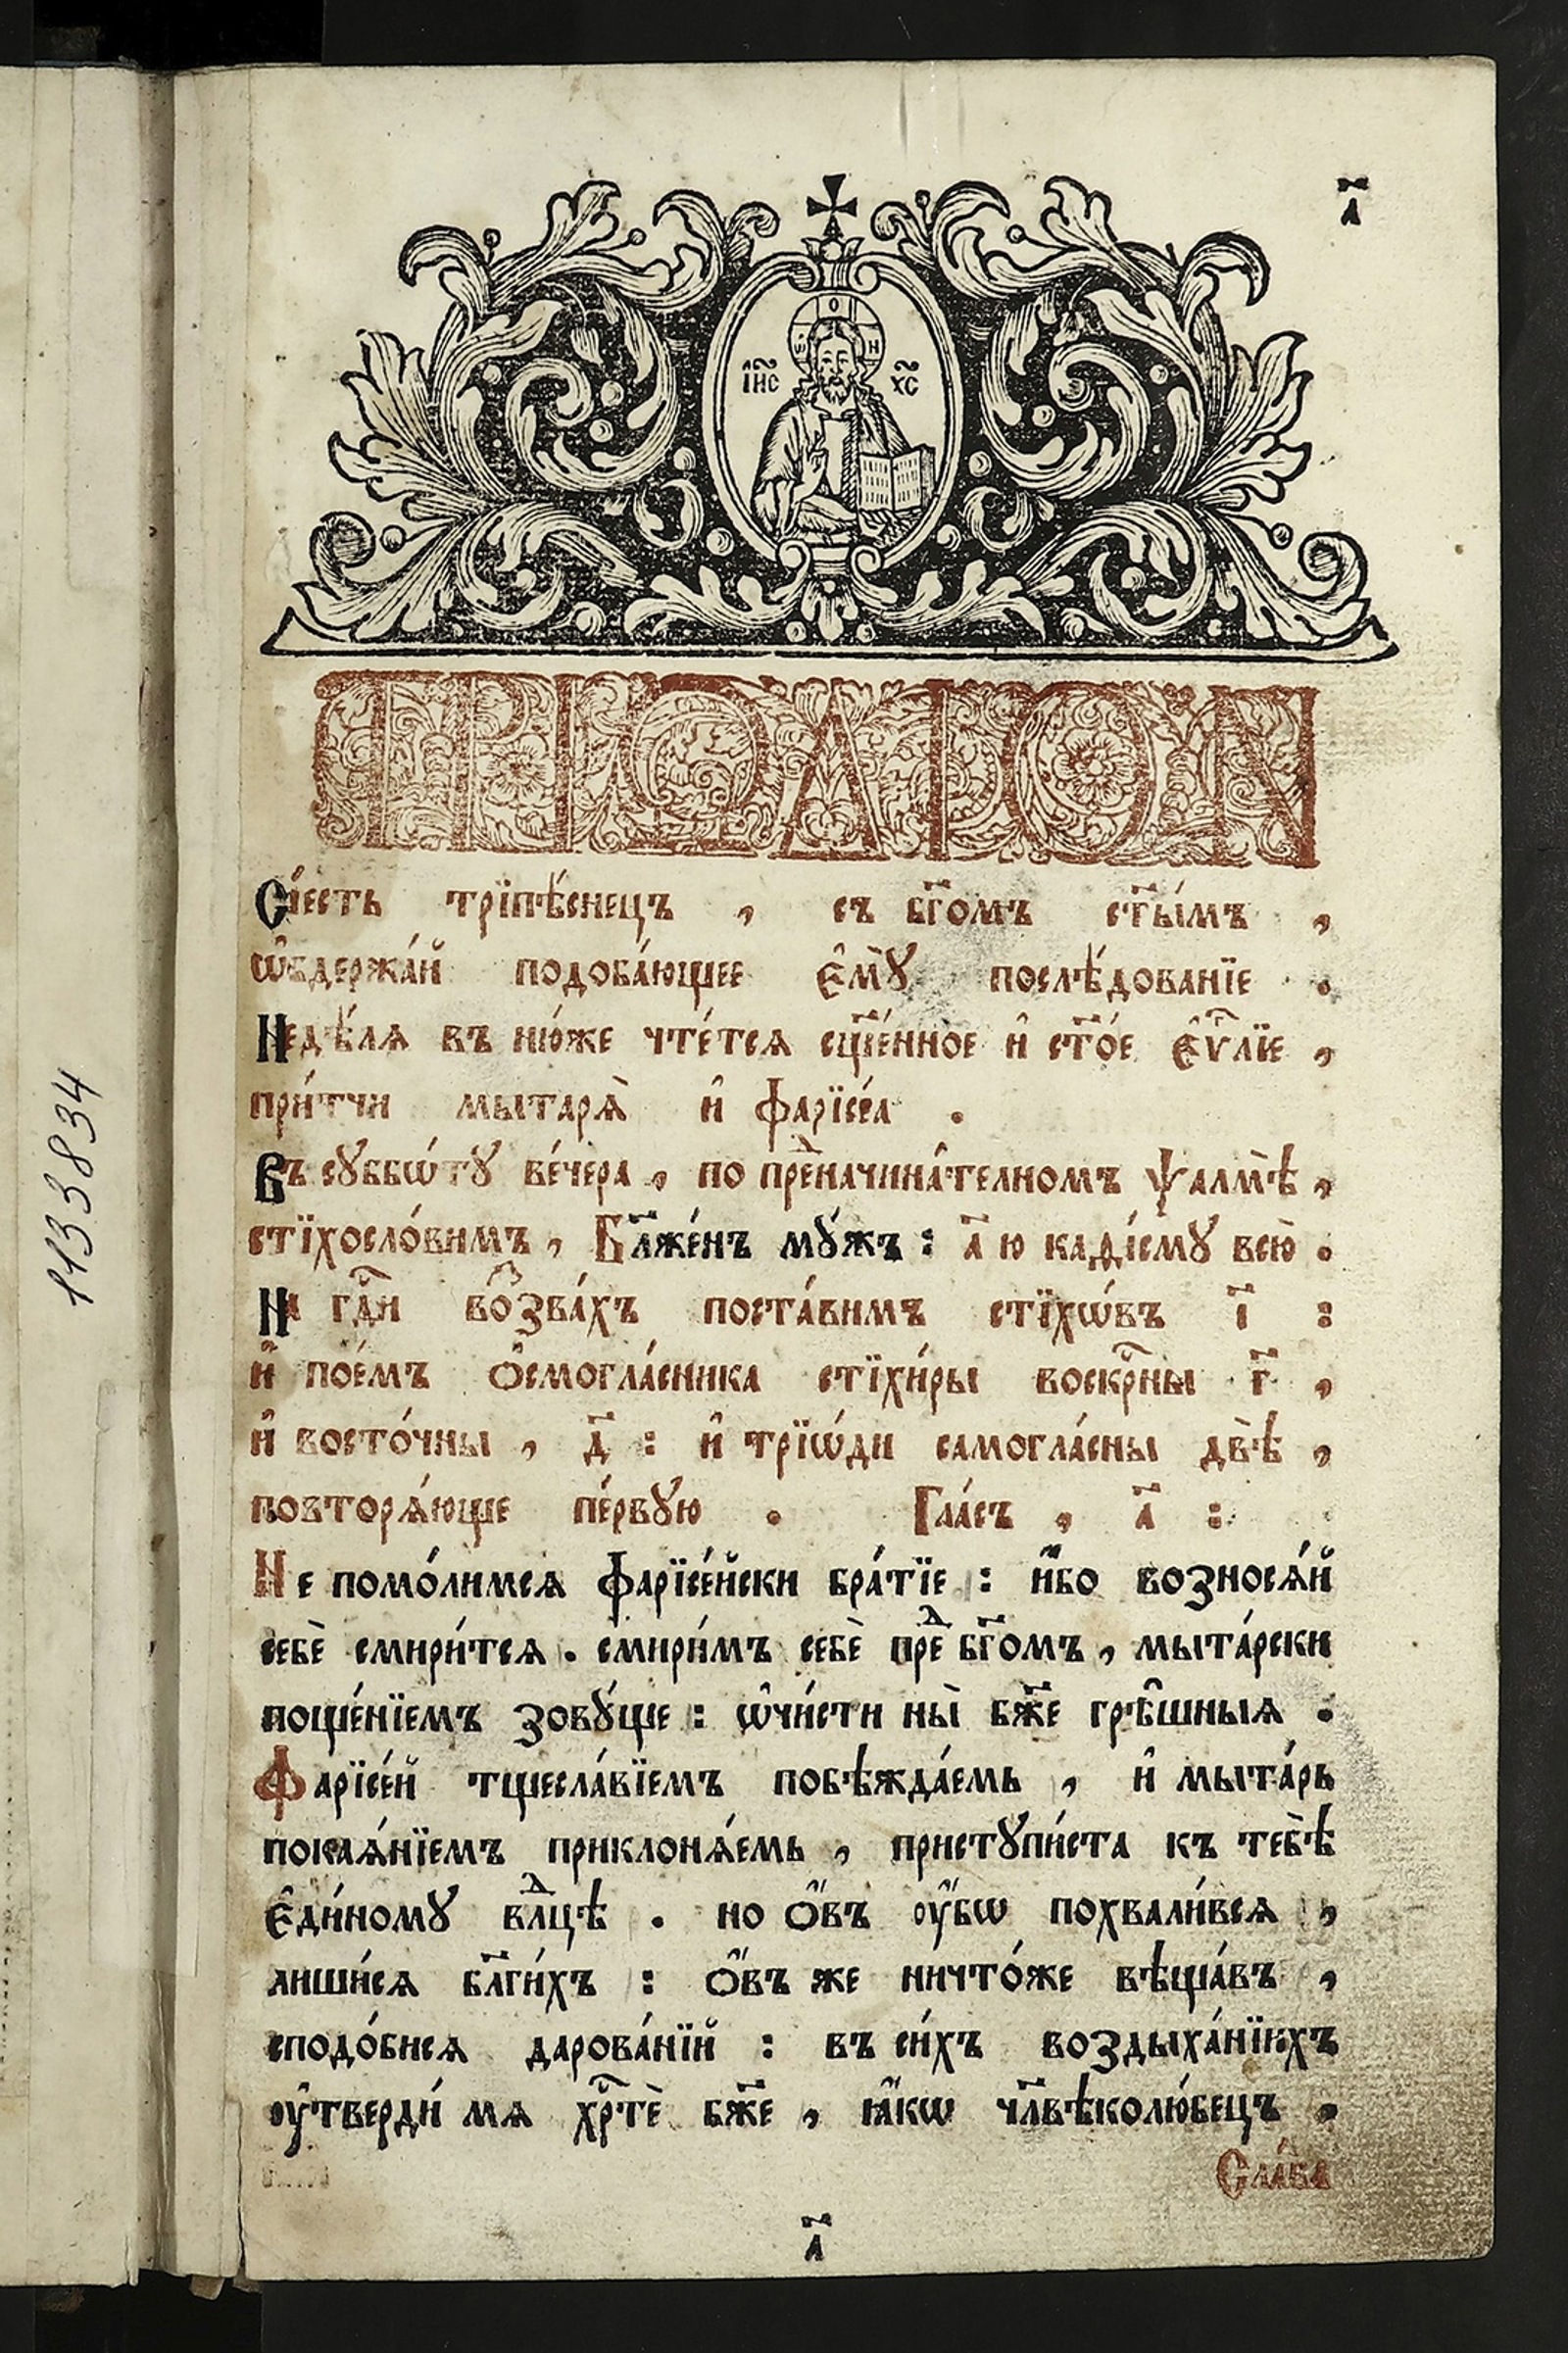 а҃
І҆и҃с Х҃с
ѡ҆ О Н
ТРІѠДІОН
Сїе́сть трїпѣ́снецъ , съ бг҃омъ ст҃ы́мъ ,
ѡ҆бдержа́й подоба́ющее є҆мꙋ̀ послѣ́дованїе .
Недѣ́ля въ ню́же чте́тся сщ҃е́нное и҆ ст҃о́е є҆ѵ҃лїе ,
при́тчи мытаря̀ и҆ фарїсе́а .
Въ сꙋббѡ́тꙋ ве́чера , по преⷣначина́телномъ ѱалмѣ̀ ,
стїхосло́вимъ , Бл҃же́нъ мꙋ́жъ : а҃ ю каѳі́смꙋ всю̀ .
На гдⷭ҇и воззва́хъ поста́вимъ стїхѡ́въ і҃ :
и҆ пое́мъ ѻ҆смогла́сника стїхи́ры воскрⷭ҇ны г҃ ,
и҆ восто́чны , д҃ : и҆ трїѡ́ди самогла́сны двѣ̀ ,
повторя́юще пе́рвꙋю . Гла́съ , а҃ :
Не помо́лимся фарїсе́йски бра́тїе : и҆́бо возносѧ́й
себѐ смири́тся . смири́мъ себѐ преⷣ бг҃омъ , мыта́рски
поще́нїемъ зовꙋ́ще : ѡ҆чи́сти ны̀ бж҃е грѣ̑шныя .
Фарїсе́й тщесла́вїемъ побѣжда́емь , и҆ мыта́рь
покая́нїемъ приклоня́емь , пристꙋпи́ста къ тебѣ̀
є҆ди́номꙋ влⷣцѣ . но ѻ҆́въ ᲂу҆́бѡ похвали́вся ,
лиши́ся бл҃ги́хъ : ѻ҆́въ же ничто́же вѣща́въ ,
сподо́бися дарова́нїй : въ си́хъ воздыха́нїихъ
ᲂу҆тверди́ мя хрⷭ҇тѐ бж҃е , ꙗ҆́кѡ чл҃вѣколю́бецъ .
Сла́ва
а҃
1133834